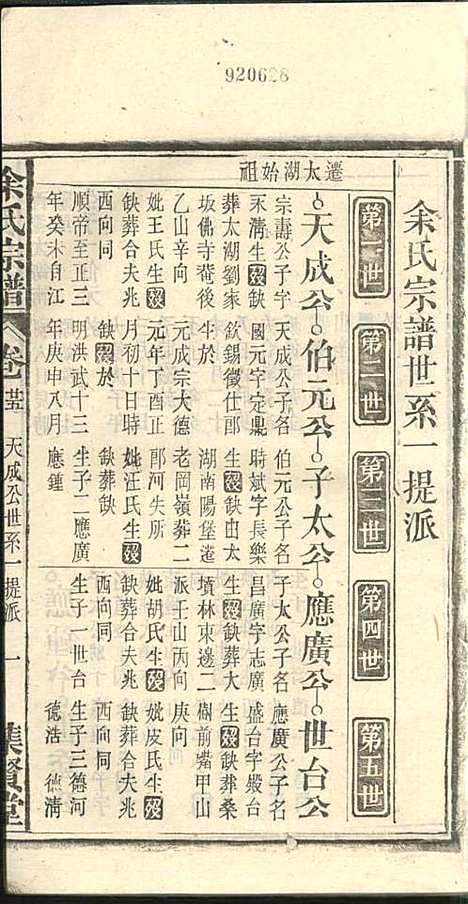 920628
余氏宗譜世系一提派
第一世
第二世
第三世
第四世
第五世
遷太湖始祖
天成公 伯元公 子太公 應廣公 世台公
宗壽公子字
永淸生殁缺
葬太湖劉家
坂佛寺菴後
乙山辛向
妣王氏生殁
缺葬合夫兆
西向同
順帝至正三
年癸未自江
天成公子名
國元字定鼎
欽錫徵仕郎
生於
元成宗大德
元年丁酉正
月初十日時
缺殁於
明洪武十三
年庚申八月
伯元公子名
時斌字長樂
生殁缺由太
湖南陽堡遷
老岡嶺葬二
郎河失所
妣汪氏生殁
缺葬缺
生子二應廣
應鍾
子太公子名
昌廣字志廣
生殁缺葬大
墳林東邊二
派壬山丙向
妣胡氏生殁
缺葬合夫兆
西向同
生子一世台
應廣公子名
盛台字嚴台
生殁缺葬桑
樹前觜甲山
庚向
妣皮氏生殁
缺葬合夫兆
西向同
生子三德河
德浩 德淸
余氏宗譜 卷廿五 天成公世系一提派 一 集賢堂